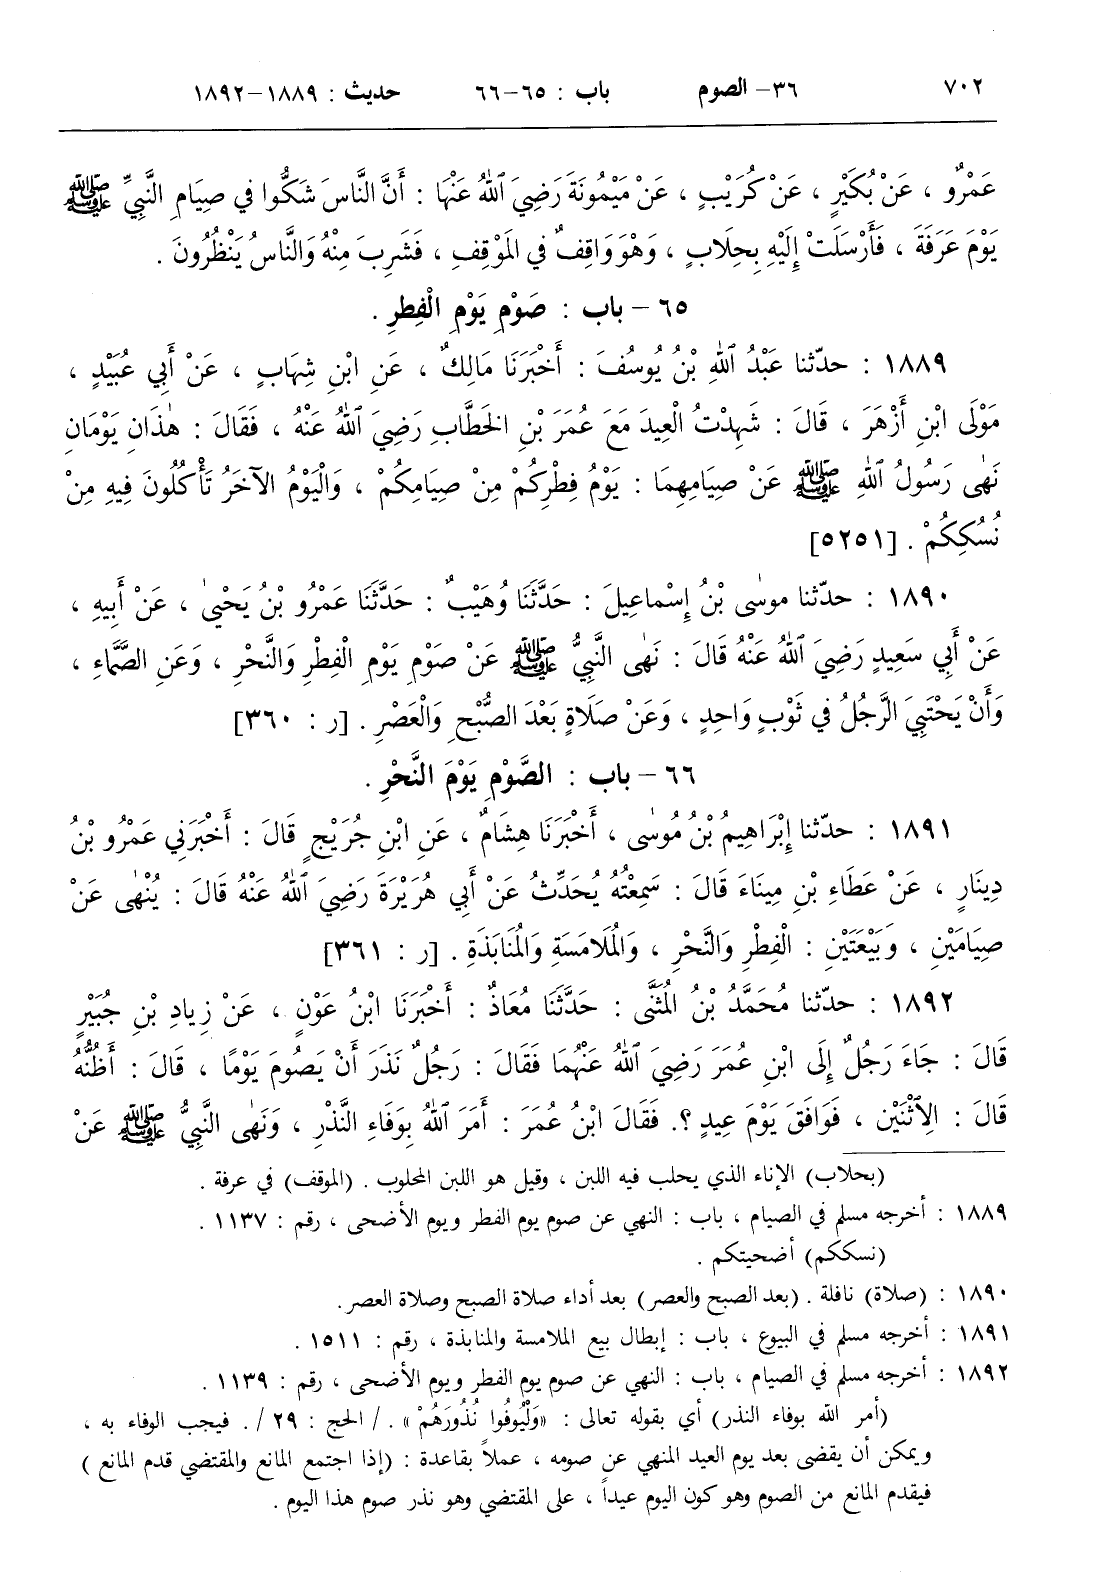 ٧٠٢ ٣٦- الصوم باب : ٦٥-٦٦ حديث : ١٨٨٩-١٨٩٢
عَمْرٌو ، عَنْ بُكَيْرٍ ، عَنْ كُرَيْبٍ ، عَنْ مَيْمُونَةَ رَضِيَ ٱللهُ عَنْهَا : أَنَّ النَّاسَ شَكُّوا في صِيَامِ النَّبِيِّ ﷺ
يَوْمَ عَرَفَةَ ، فَأَرْسَلَتْ إِلَيْهِ بِحِلَابٍ ، وَهْوَ وَاقِفٌ في المَوْقِفِ ، فَشَرِبَ مِنْهُ وَالنَّاسُ يَنْظُرُونَ .
٦٥ – باب : صَوْمِ يَوْمِ الْفِطرِ .
١٨٨٩ : حدّثنا عَبْدُ ٱللهِ بْنُ يُوسُفَ : أَخْبَرَنَا مَالِكٌ ، عَنِ ابْنِ شِهَابٍ ، عَنْ أَبِي عُبَيْدٍ ،
مَوْلَى ابْنِ أَزْهَرَ ، قَالَ : شَهِدْتُ الْعِيدَ مَعَ عُمَرَ بْنِ الخَطَّابِ رَضِيَ ٱللهُ عَنْهُ ، فَقَالَ : هٰذَانِ يَوْمَانِ
نَهٰى رَسُولُ ٱللهِ ﷺ عَنْ صِيَامِهِمَا : يَوْمُ فِطْرِكُمْ مِنْ صِيَامِكُمْ ، وَالْيَوْمُ الآخَرُ تَأْكُلُونَ فِيهِ مِنْ
نُسُكِكُمْ . [٥٢٥١]
١٨٩٠ : حدّثنا موسٰى بْنُ إِسْماعِيلَ : حَدَّثَنَا وُهَيْبٌ : حَدَّثَنَا عَمْرُو بْنُ يَحْيىٰ ، عَنْ أَبِيهِ ،
عَنْ أَبِي سَعِيدٍ رَضِيَ ٱللهُ عَنْهُ قَالَ : نَهٰى النَّبِيُّ ﷺ عَنْ صَوْمِ يَوْمِ الْفِطْرِ وَالنَّحْرِ ، وَعَنِ الصَّمَّاءِ ،
وَأَنْ يَحْتَبِيَ الرَّجُلُ في ثَوْبٍ وَاحِدٍ ، وَعَنْ صَلَاةٍ بَعْدَ الصُّبْحِ وَالْعَصْرِ . [ر : ٣٦٠]
٦٦ – باب : الصَّوْمِ يَوْمَ النَّحْرِ .
١٨٩١ : حدّثنا إِبْرَاهِيمُ بْنُ مُوسٰى ، أَخْبَرَنَا هِشَامٌ ، عَنِ ابْنِ جُرَيْجٍ قَالَ : أَخْبَرَنِي عَمْرُو بْنُ
دِينَارٍ ، عَنْ عَطَاءِ بْنِ مِينَاءَ قَالَ : سَمِعْتُهُ يُحَدِّثُ عَنْ أَبِي هُرَيْرَةَ رَضِيَ ٱللهُ عَنْهُ قَالَ : يُنْهٰى عَنْ
صِيَامَيْنِ ، وَبَيْعَتَيْنِ : الْفِطْرِ وَالنَّحْرِ ، وَالْمُلَامَسَةِ وَالْمُنَابَذَةِ . [ر : ٣٦١]
١٨٩٢ : حدّثنا مُحَمَّدُ بْنُ الْمُثَنَّى : حَدَّثَنَا مُعَاذٌ : أَخْبَرَنَا ابْنُ عَوْنٍ ، عَنْ زِيَادِ بْنِ جُبَيْرٍ
قَالَ : جَاءَ رَجُلٌ إِلَى ابْنِ عُمَرَ رَضِيَ ٱللهُ عَنْهُمَا فَقَالَ : رَجُلٌ نَذَرَ أَنْ يَصُومَ يَوْمًا ، قَالَ : أَظُنُّهُ
قَالَ : الِٱثْنَيْنِ ، فَوَافَقَ يَوْمَ عِيدٍ ؟. فَقَالَ ابْنُ عُمَرَ : أَمَرَ ٱللهُ بِوَفَاءِ النَّذْرِ ، وَنَهٰى النَّبِيُّ ﷺ عَنْ
(بحلاب) الإناء الذي يحلب فيه اللبن ، وقيل هو اللبن المحلوب . (الموقف) في عرفة .
١٨٨٩ : أخرجه مسلم في الصيام ، باب : النهي عن صوم يوم الفطر ويوم الأضحى ، رقم : ١١٣٧ .
(نسككم) أضحيتكم .
١٨٩٠ : (صلاة) نافلة . (بعد الصبح والعصر) بعد أداء صلاة الصبح وصلاة العصر.
١٨٩١ : أخرجه مسلم في البيوع ، باب : إبطال بيع الملامسة والمنابذة ، رقم : ١٥١١ .
١٨٩٢ : أخرجه مسلم في الصيام ، باب : النهي عن صوم يوم الفطر ويوم الأضحى ، رقم : ١١٣٩ .
(أمر الله بوفاء النذر) أي بقوله تعالى : «وَلْيُوفُوا نُذُورَهُمْ» . / الحج : ٢٩ / . فيجب الوفاء به ،
ويمكن أن يقضى بعد يوم العيد المنهي عن صومه ، عملاً بقاعدة : (إذا اجتمع المانع والمقتضي قدم المانع )
فيقدم المانع من الصوم وهو كون اليوم عيداً ، على المقتضي وهو نذر صوم هذا اليوم .